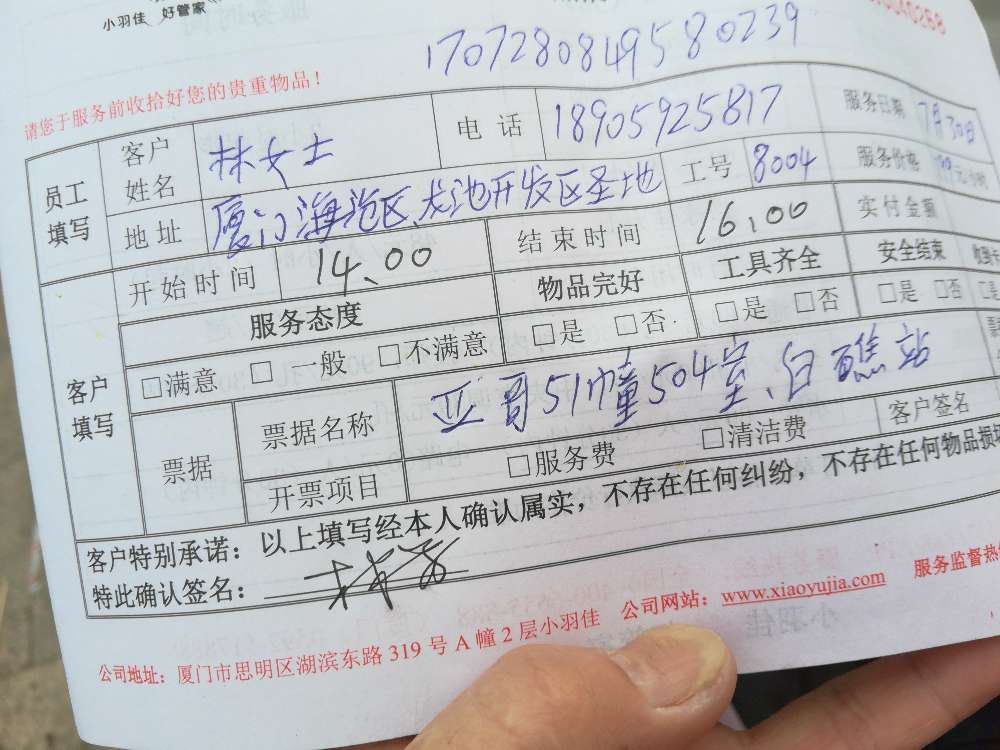 小羽佳 好管家
170728084958 0239
请您于服务前收拾好您的贵重物品！
员工填写 客户姓名 林女士 电话 18905925817 服务日期 7月30日
地址 厦门海沧区 龙池开发区圣地 工号 8004 服务价格 元/小时
开始时间 14、00 结束时间 16,00 实付金额
客户填写 服务态度 物品完好 工具齐全 安全结束
□满意 □一般 □不满意 □是 □否 □是 □否 □是 □否
票据 票据名称 亚哥51幢504室、白礁站
开票项目 □服务费 □清洁费 客户签名
客户特别承诺：以上填写经本人确认属实，不存在任何纠纷，不存在任何物品损
特此确认签名：
公司地址：厦门市思明区湖滨东路 319 号 A 幢 2 层小羽佳 公司网站：www.xiaoyujia.com 服务监督热